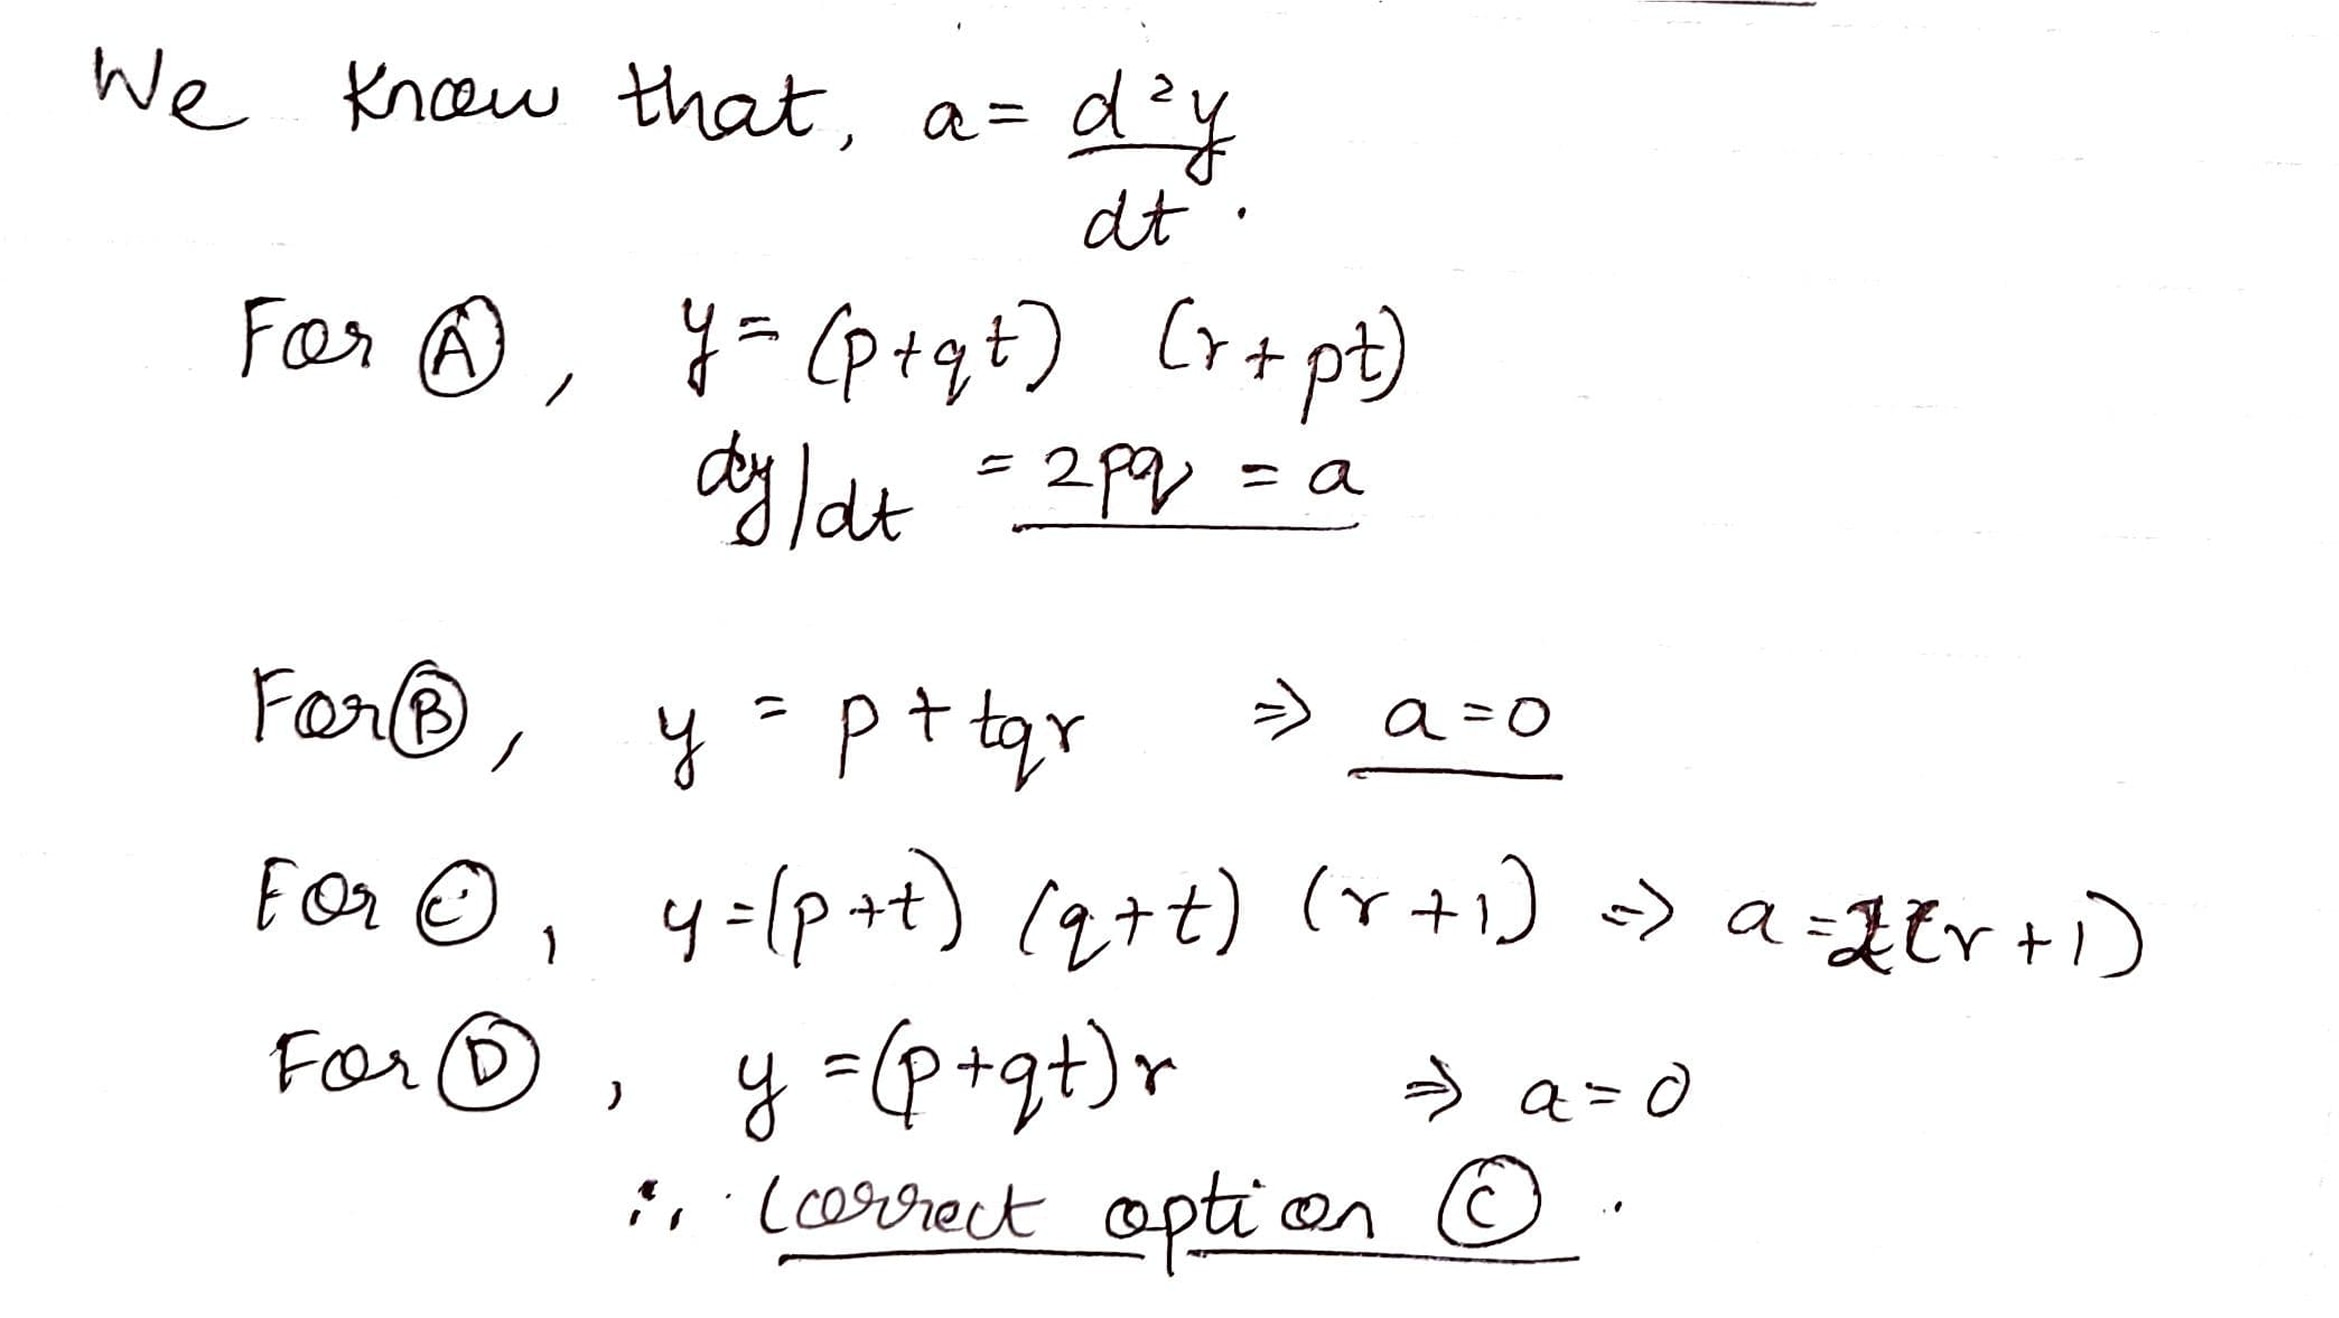 We know that, a = d²y
dt .
For Ⓐ, y = (p+qt) (r+pt)
dy/dt = 2pq = a
For Ⓑ, y = p + tqr ⇒ a=0
For Ⓒ, y=(p+t) (q+t) (r+1) ⇒ a = (r+1)
For Ⓓ, y =(p+qt)r ⇒ a=0
∴ correct option Ⓒ .